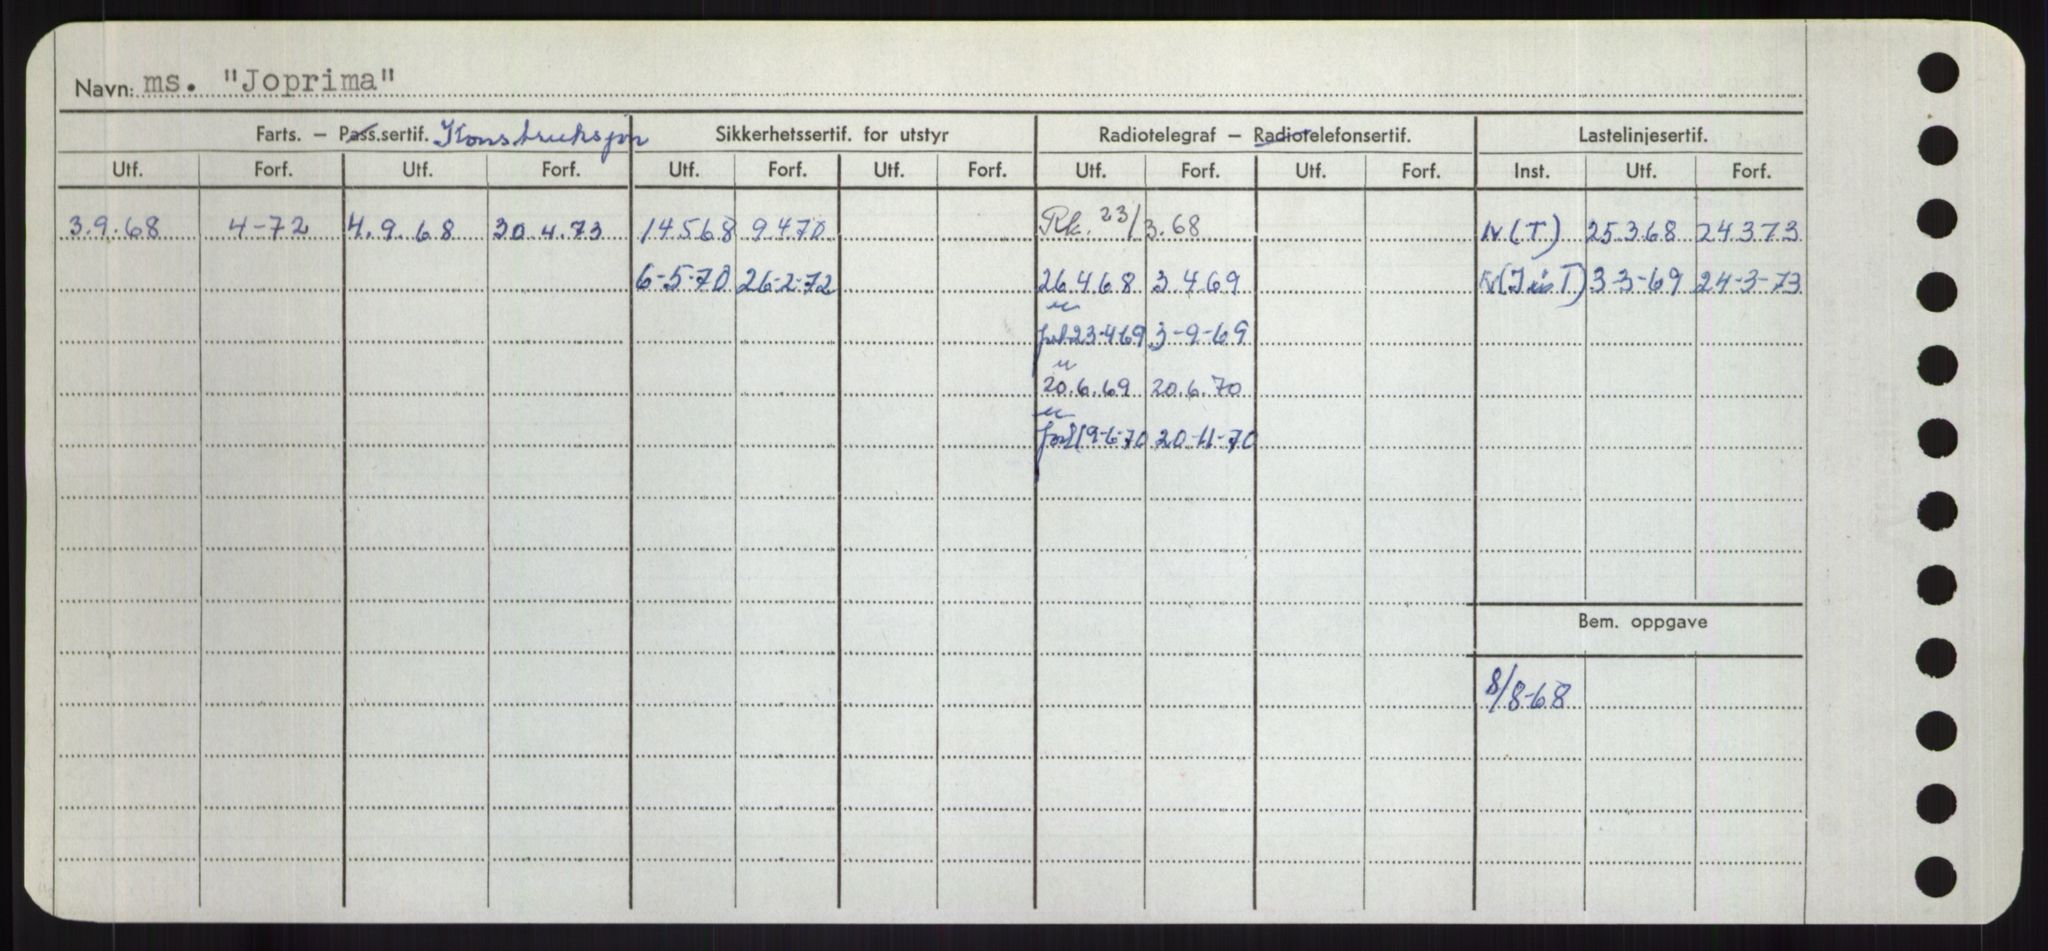 Navn: ms. "Joprima"
Farts. – Pass.sertif. Konstruksjon Sikkerhetssertif. for utstyr Radiotelegraf – Radiotelefonsertif. Lastelinjesertif.
Utf. Forf. Utf. Forf. Utf. Forf. Utf. Forf. Utf. Forf. Utf. Forf. Inst. Utf. Forf.
3.9.68 4-72 4.9.68 30.4.73 14568 9470 Rk. 23/3.68 Nv(T) 25368 24373
6-5-70 26-2-72 26468 3469 3-3-69 24-3-73
23-469 3-9-69
20.6.69 20.6.70
forl 19-6-70 20-11-70
Bem. oppgave
8/8-68